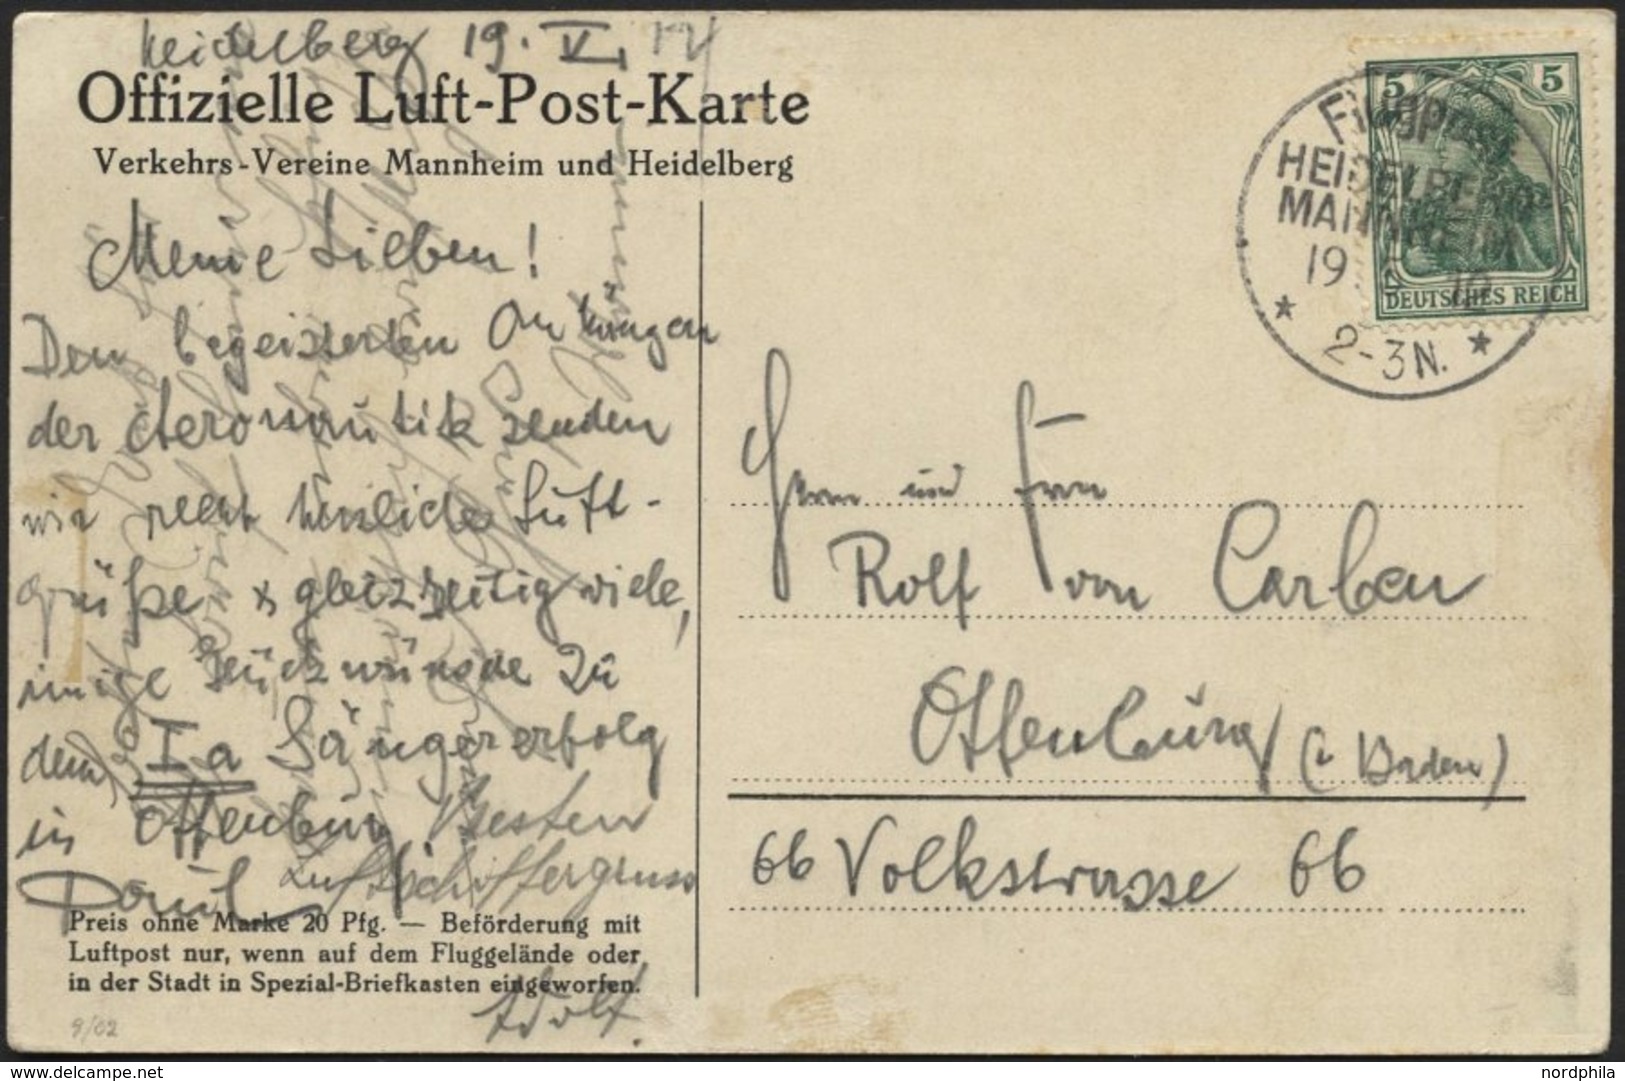 Heidelberg 19. V. 12
Offizielle Luft-Post-Karte
Verkehrs-Vereine Mannheim und Heidelberg
Meine Lieben!
Den begeisterten
der Aeronautik senden
wir recht herzliche Luft-
grüße & gleizzeitig viele,
innige Glückwünsche zu
dem Ia Sängererfolg
in Offenburg Besten
Paul Luftschiffergruss
Preis ohne Marke 20 Pfg. — Beförderung mit
Luftpost nur, wenn auf dem Fluggelände oder
in der Stadt in Spezial-Briefkasten eingeworfen.
Adolf.
9/02
5 5
DEUTSCHES REICH
Flugp
HEIDELBERG
MANNHEIM
19 12
* 2-3N. *
Herrn und Frau
Rolf von Carben
Offenburg (i Baden)
66 Volkstrasse 66
nordphila